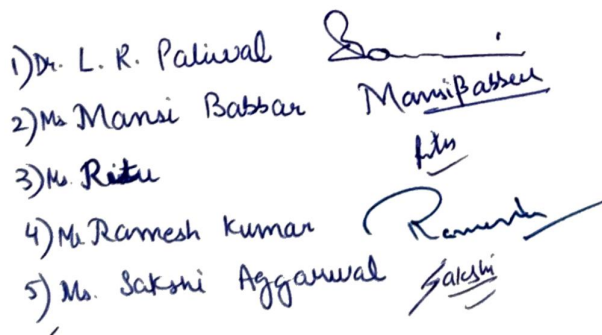 1) Dr. L. R. Paliwal
2) Ms Mansi Babbar Mansi Babbar
3) Ms. Ritu Ritu
4) Mr Ramesh Kumar Ramesh
5) Ms. Sakshi Aggarwal Sakshi